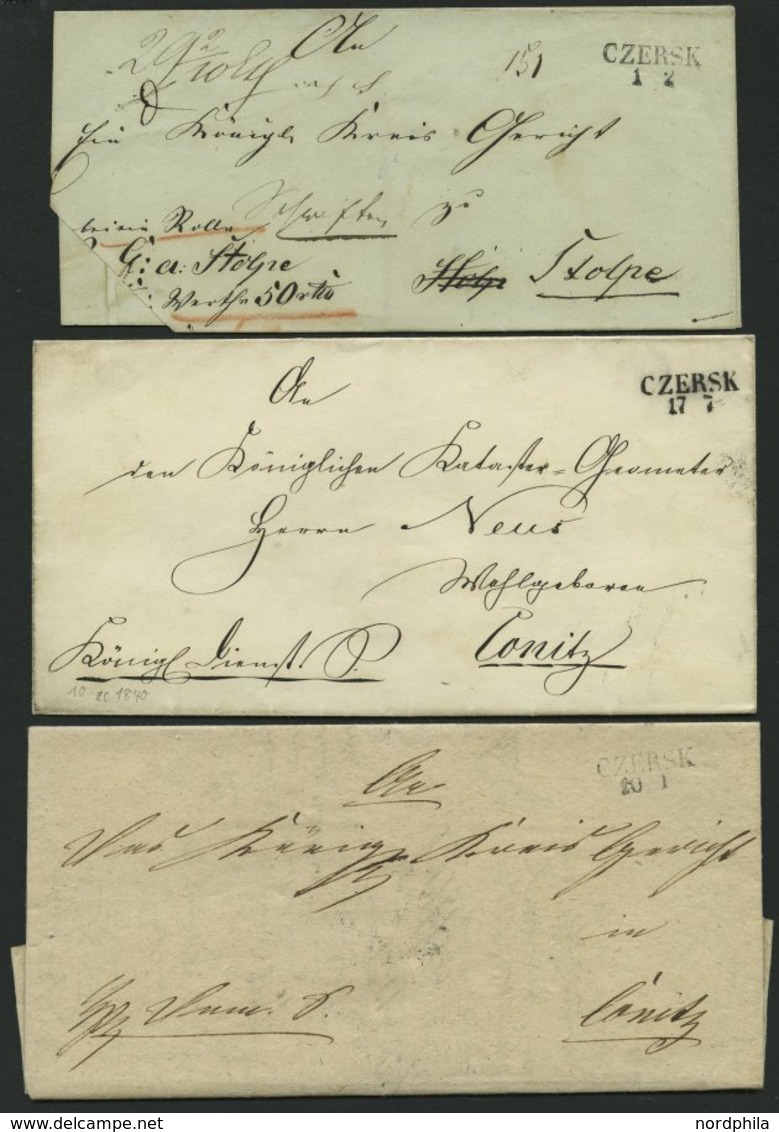 An
151
CZERSK
1 2
Ein Königl Kreis Gericht
beiein Rolle Schriften zu
G: a: Stolpe
Stolp Stolpe
Werth 50 rtlr
CZERSK
17 7
An
den Königlichen Kataster=Geometer
Herrn Neus
Wohlgeboren
Königl Dienst S. Conitz
10 1840
CZERSK
20 1
An
Das Königl Kreis Gericht
in
Conitz
www.delcampe.net
nordphila